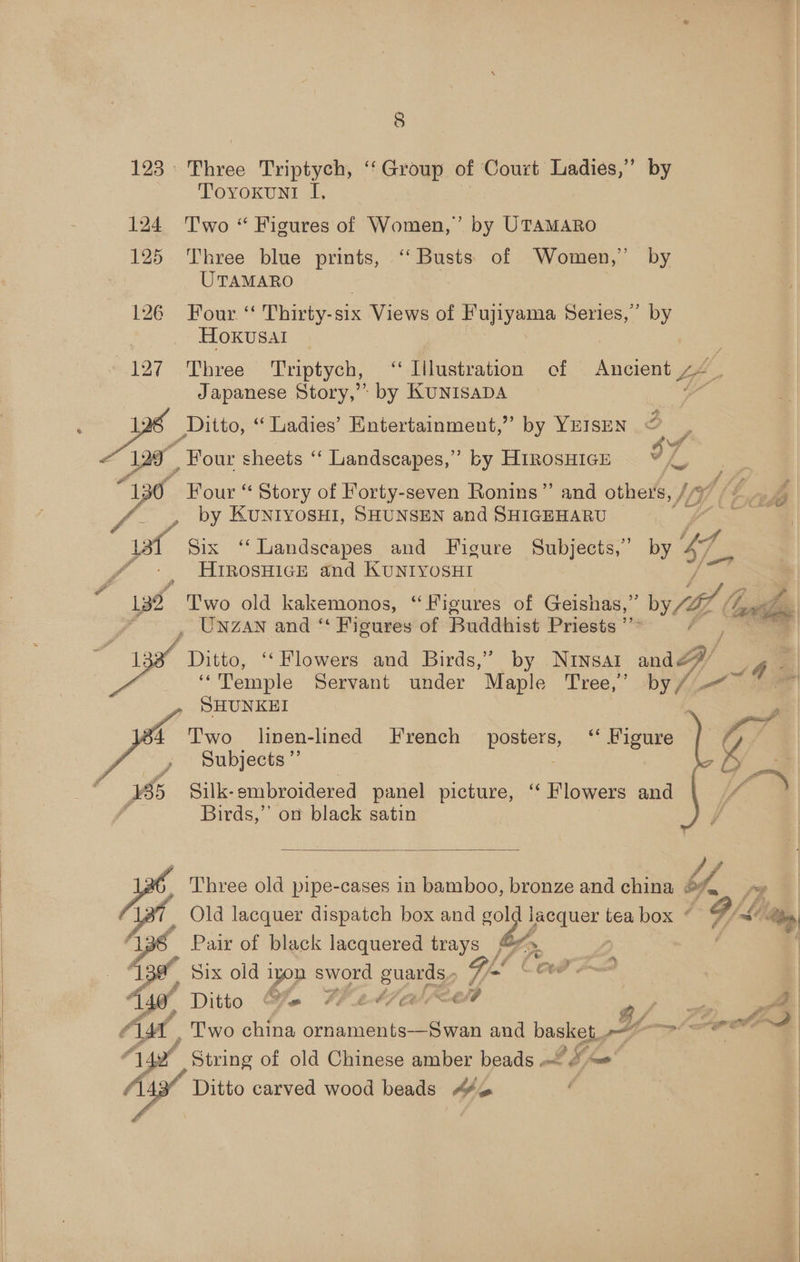 8
123 Three Triptych, “Group of Court Ladies,” by
TOYOKUNI I.
124 Two “Figures of Women,” by UTAMARO
125 Three blue prints, “Busts of Women,” by
UTAMARO
126 Four “Thirty-six Views of Fujiyama Series,” by
HOKUSAI
127 Three Triptych, “Illustration of Ancient
Japanese Story,” by KUNISADA
128 Ditto, “Ladies’ Entertainment,” by YEISEN
129 Four sheets “Landscapes,” by HIROSHIGE
130 Four “Story of Forty-seven Ronins” and others,
by KUNIYOSHI, SHUNSEN and SHIGEHARU
131 Six “Landscapes and Figure Subjects,” by
HIROSHIGE and KUNIYOSHI
132 Two old kakemonos, “Figures of Geishas,” by
UNZAN and “Figures of Buddhist Priests”
133 Ditto, “Flowers and Birds,” by NINSAI and
“Temple Servant under Maple Tree,” by
SHUNKEI
134 Two linen-lined French posters, “Figure
Subjects”
135 Silk-embroidered panel picture, “Flowers and
Birds,” on black satin
136 Three old pipe-cases in bamboo, bronze and china
137 Old lacquer dispatch box and gold lacquer tea box
138 Pair of black lacquered trays
139 Six old iron sword guards
140 Ditto
141 Two china ornaments—Swan and basket
142 String of old Chinese amber beads
143 Ditto carved wood beads